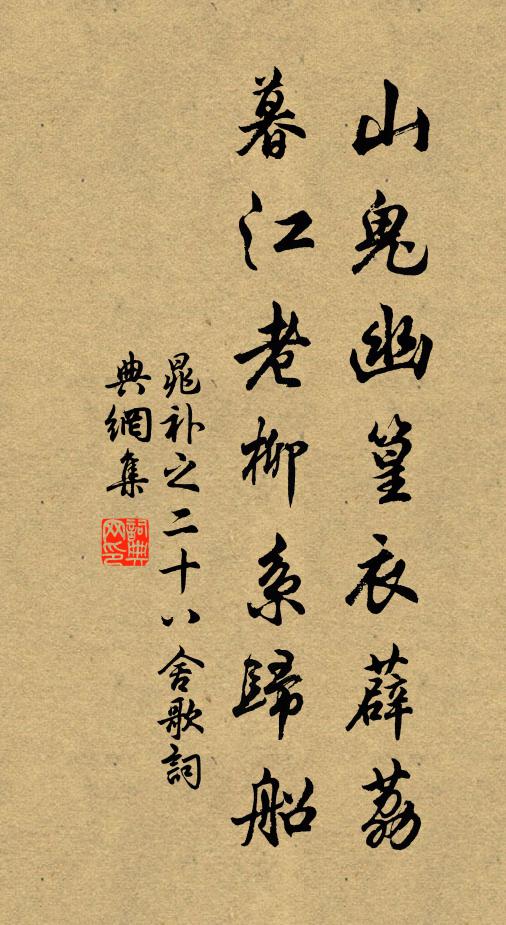 山鬼幽篁衣薜荔
暮江老柳系歸船
晁补之二十八舍歌詞
典網集
詞典网印